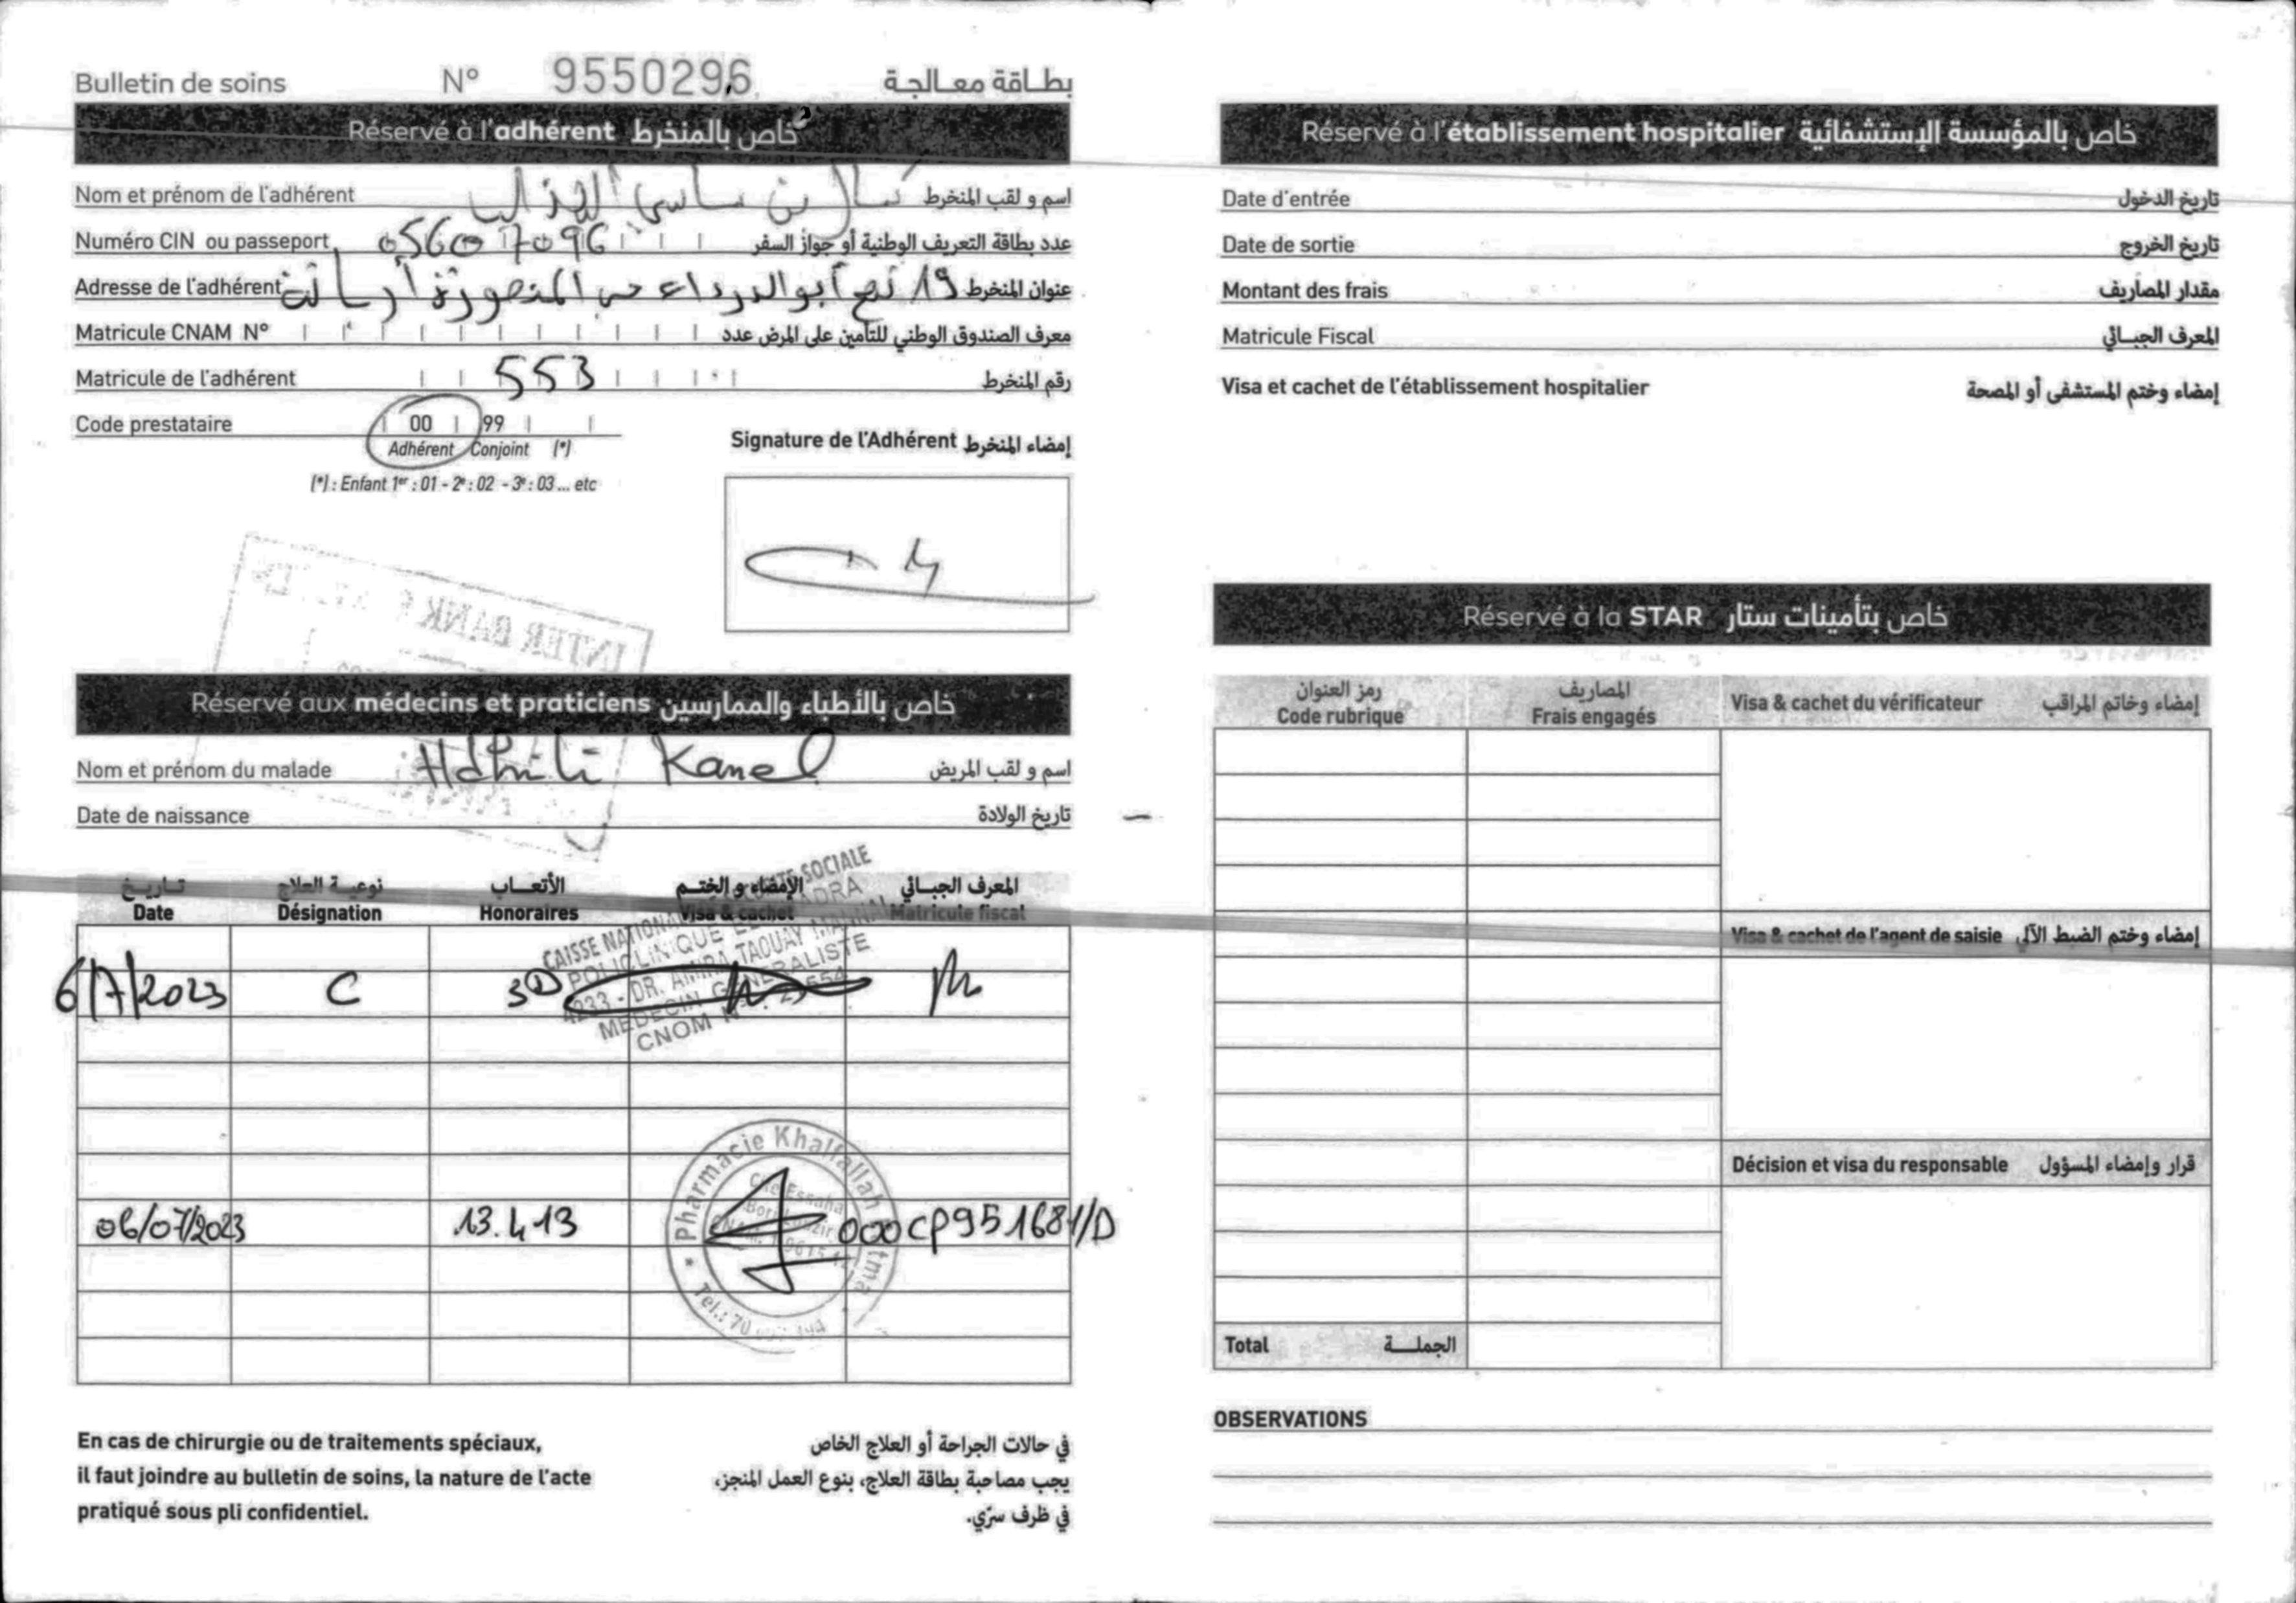 Bulletin de soins N° 9550296 بطاقة معالجة
Réservé à l'adhérent خاص بالمنخرط
Nom et prénom de l'adhérent بن ساسي اسم و لقب المنخرط
Numéro CIN ou passeport 05607096 عدد بطاقة التعريف الوطنية أو جواز السفر
Adresse de l'adhérent 19 نهج أبو الدرداء حي المنصورة عنوان المنخرط
Matricule CNAM N° معرف الصندوق الوطني للتأمين على المرض عدد
Matricule de l'adhérent 553 رقم المنخرط
Code prestataire 00 99
Adhérent Conjoint (*)
(*) : Enfant 1er : 01 - 2e : 02 - 3e : 03 ... etc
Signature de l'Adhérent إمضاء المنخرط
INTER BANK
Réservé aux médecins et praticiens خاص بالأطباء والممارسين
Nom et prénom du malade Hdhili Kamel اسم و لقب المريض
Date de naissance تاريخ الولادة
تاريخ نوعية العلاج الأتعاب الإمضاء و الختم المعرف الجبائي
Date Désignation Honoraires Visa & cachet Matricule fiscal
6/7/2023 C 3D
CAISSE NATIONALE SOCIALE
POLICLINIQUE
4233 - DR. AMIRA TAOUAY
MEDECIN GENERALISTE
CNOM N°
06/07/2023 13.413 000CP951681/D
Pharmacie Khalfallah
Cité Essaha
Tél.: 70
En cas de chirurgie ou de traitements spéciaux,
il faut joindre au bulletin de soins, la nature de l'acte
pratiqué sous pli confidentiel.
في حالات الجراحة أو العلاج الخاص
يجب مصاحبة بطاقة العلاج، بنوع العمل المنجز،
في ظرف سرّي.
Réservé à l'établissement hospitalier خاص بالمؤسسة الإستشفائية
Date d'entrée تاريخ الدخول
Date de sortie تاريخ الخروج
Montant des frais مقدار المصاريف
Matricule Fiscal المعرف الجبائي
Visa et cachet de l'établissement hospitalier إمضاء وختم المستشفى أو المصحة
Réservé à la STAR خاص بتأمينات ستار
رمز العنوان المصاريف
Code rubrique Frais engagés Visa & cachet du vérificateur إمضاء وخاتم المراقب
Visa & cachet de l'agent de saisie إمضاء وختم الضبط الآلي
Décision et visa du responsable قرار وإمضاء المسؤول
Total الجملة
OBSERVATIONS